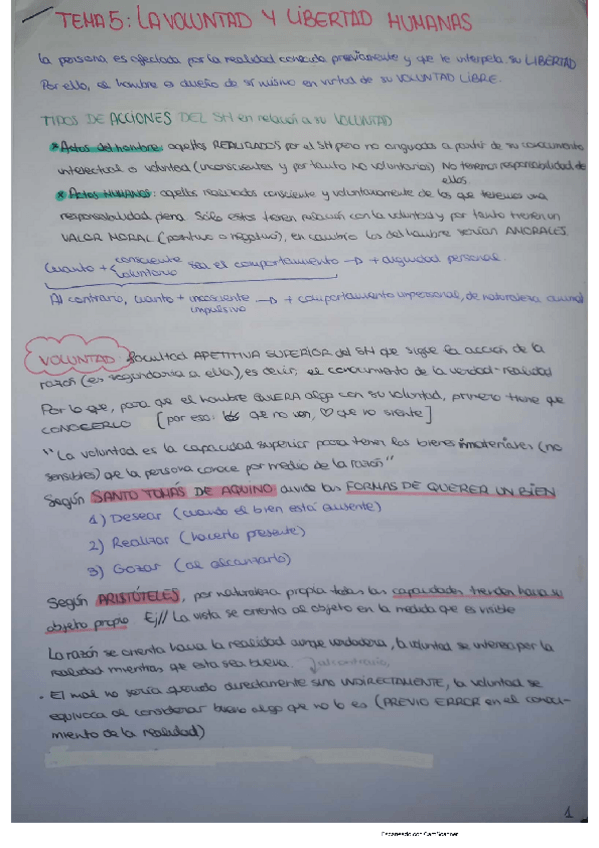 TEMA 5: LA VOLUNTAD Y LIBERTAD HUMANAS
La persona es afectada por la realidad conocida previamente y que le interpela su LIBERTAD
Por ello, el hombre es dueño de sí mismo en virtud de su VOLUNTAD LIBRE.
TIPOS DE ACCIONES DEL SH en relación a su VOLUNTAD
* Actos del hombre: aquellos REALIZADOS por el SH pero no originados a partir de su conocimiento
intelectual o voluntad (inconscientes y por tanto NO voluntarios) No tenemos responsabilidad de
ellos.
* Actos HUMANOS: aquellos realizados consciente y voluntariamente de los que tenemos una
responsabilidad plena. Sólo estos tienen relación con la voluntad y por tanto tienen un
VALOR MORAL (positivo o negativo), en cambio los del hombre serían AMORALES.
Cuanto + consciente
voluntario sea el comportamiento → + dignidad personal.
Al contrario, cuanto + inconsciente
impulsivo → + comportamiento impersonal, de naturaleza animal
VOLUNTAD: facultad APETITIVA SUPERIOR del SH que sigue la acción de la
razón (es segundaria a ella), es decir, el conocimiento de la verdad-realidad
Por lo que, para que el hombre QUIERA algo con su voluntad, primero tiene que
CONOCERLO [por eso: que no ven, ♡ que no siente]
"La voluntad es la capacidad superior para tener los bienes inmateriales (no
sensibles) que la persona conoce por medio de la razón"
Según SANTO TOMÁS DE AQUINO divide las FORMAS DE QUERER UN BIEN
1) Desear (cuando el bien está ausente)
2) Realizar (hacerlo presente)
3) Gozar (al alcanzarlo)
Según ARISTÓTELES, por naturaleza propia todas las capacidades tienden hacia su
objeto propio Ej// La vista se orienta al objeto en la medida que es visible
La razón se orienta hacia la realidad aunque verdadera, la voluntad se interesa por la
realidad mientras que esta sea buena. al contrario,
· El mal no sería querido directamente sino INDIRECTAMENTE, la voluntad se
equivoca al considerar bueno algo que no lo es (PREVIO ERROR en el conoci-
miento de la realidad)
1
Escaneado con CamScanner